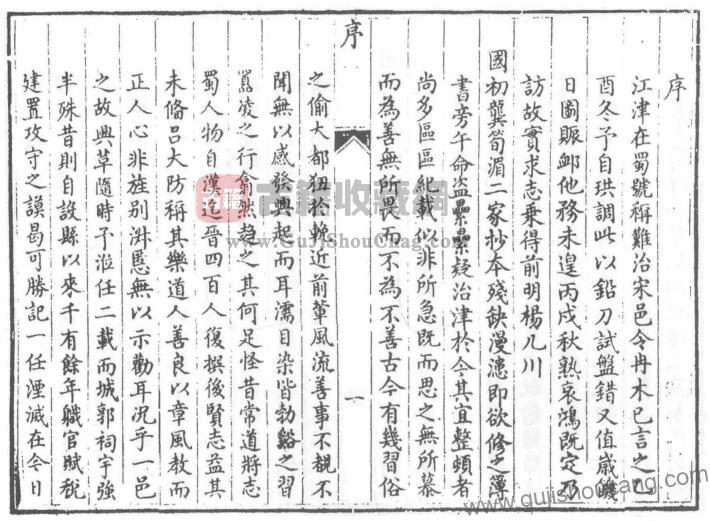 序
江津在蜀號稱難治宋邑令冉木已言之乙
酉冬予自珙調此以鉛刀試盤錯又值嵗饑
日圖賑䘏他務未遑丙戌秋熟哀鴻既定乃
訪故實求志乗得前明楊几川
國初龔筍湄二家抄本殘缺漫漶即欲修之簿
書旁午命盗纍纍疑治津於今其宜整頓者
尚多區區紀載似非所急既而思之無所慕
而為善無所畏而不為不善古今有幾習俗
序
一
之偷大都狃於輓近前軰風流善事不覩不
聞無以感發興起而耳濡目染皆勃谿之習
嚚凌之行翕然趋之其何足怪昔常道將志
蜀人物自漢迄晉四百人復撰後賢志益其
未偹吕大防稱其樂道人善良以章風教而
正人心非旌别淑慝無以示勸耳況乎一邑
之故興革隨時予涖任二載而城郭祠宇强
半殊昔則自設縣以來千有餘年軄官賦税
建置攻守之謨曷可勝記一任湮滅在令日
古籍
古籍收藏網
www.GuJiShouCang.com
www.gujishoucang.com